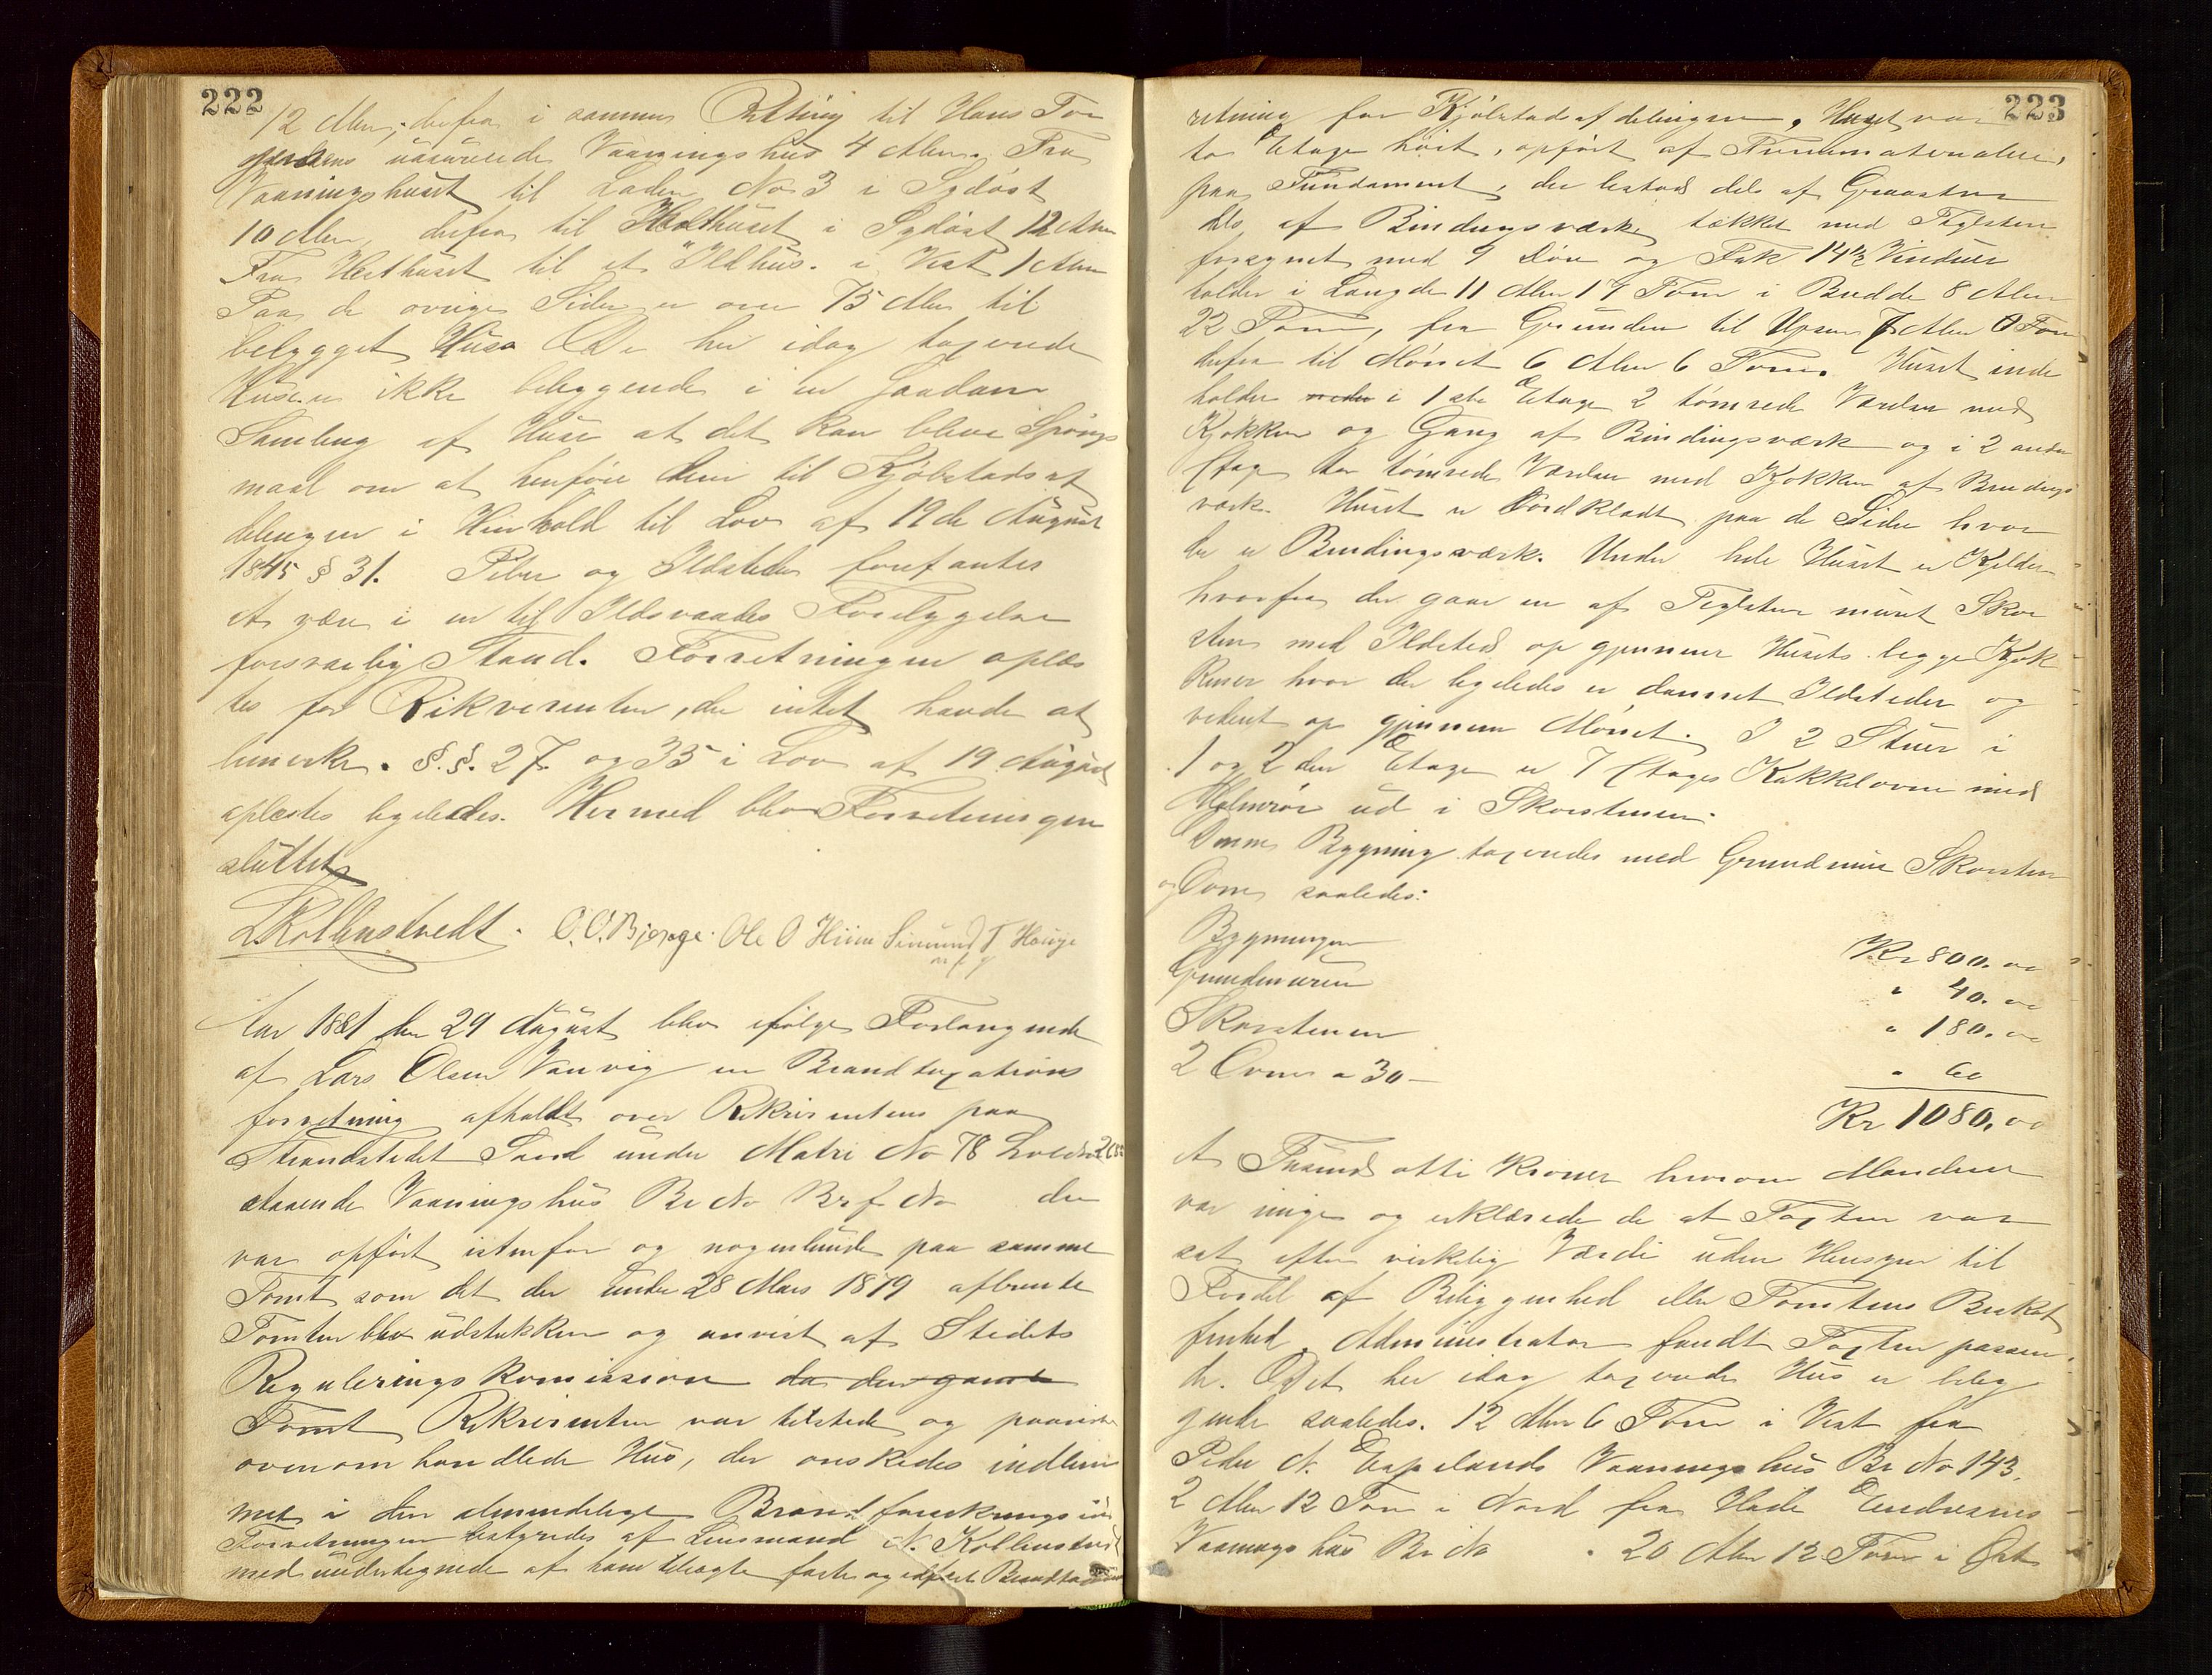 222
12 Alen, derfra i samme Retning til Hans Tor
gersens uasurerede Vaaningshus 4 Alen. Fra
Vaaningshuset til Laden No 3 i Sydöst
10 Alen, derfra til Hesthuset i Sydöst 12 Alen
Fra Hesthuset til et Ildhus i Vest 1 Alen
Paa de övrige Sider er over 75 Alen til
bebygget Huse De her idag taxerede
Huse er ikke beliggende i en saadan
Samling af Huse at det kan blive Spörgs
maal om at henföre dem til Kjöbstadsaf
delingen i Henhold til Lov af 19de August
1845 § 31. Piber og Ildsteder forefantes
at være i en til Ildsvaades Forebyggelse
forsvarlig Stand. Forretningen oplæs
tes for Rikverenten, der intet havde at
bemerke. §.§. 27 og 35 i Lov af 19 August
oplæstes ligeledes. Hermed blev Forretningen
sluttet
Kollenstvedt. O.O. Bjerge. Ole O Hiim Simund T Hauge
m f p
Aar 1881 den 29 August blev ifölge Forlangende
af Lars Olsen Vanvig en Brandtaxations
forretning afholdt over Rekvirentens paa
Strandstedet Sand under Matri No 78
staaende Vaaningshus Br No Brf No der
var opfört istenfor og nogenlunde paa samme
Tomt som det der under 28 Mars 1879 afbrente
Tomten blev udstukken og anvist af Stedets
Reguleringskomission da den gamle
Tomt Rekvirenten var tilstede og paaviste
ovenomhandlede Hus, der önskedes indlem
met i den almindelige Brandforsikrings ind
Forretningen bestyredes af Lensmand N. Kollenstvedt
med undertegnede af ham tiltagte faste og edfæst
223
retning for Kjöbstadsafdelingen, Huset var
to Etage höit, opfört af Furumaterialier,
paa Fundament, der bestod dels af Graasten
dels af Bindingsværk, tækket med Teglsten
forsynet med 9 Döre og Fak 14½ Vinduer
holder i Længde 11 Alen 17 Tom i Bredde 8 Alen
22 Tom, fra Grunden til Upsen 7 Alen 0 Tom
derfra til Mönet 6 Alen 6 Tom. Huset inde
holder neder i 1ste Etage 2 tömrede Værelser med
Kjökken og Gang af Bindingsværk og i 2 anden
Etage to tömrede Værelser med Kjökken af Bindings
værk. Huset er Bordklædt paa de Sider hvor
der er Bindingsværk. Under hele Huset er Kjelder
hvorfra der gaar en af Teglsten muret Skor
sten med Ildsted op gjennem Husets begge Kjök
kener hvor der ligeledes er dannet Ildsteder og
videre op gjennem Mönet. I 2 Stuer i
1 og 2den Etage er 7 Etages Kakkelovne med
ud i Skorstenen.
Denne Bygning taxeredes med Grundmur Skorsten
og Ovne saaledes:
Bygningen Kr 800. oo
Grundmuren " 40. oo
Skorstenen " 180. oo
2 Ovne a 30 – " 60
Kr 1080, oo
et Tusind otti Kroner hvorom Mændene
var enige og erklærede de at Taxten var
sat efter virkelig Værdi uden Hensyn til
Fordel af Beliggenhed eller Tomtens Beskaf
fenhed. Administrator fandt Taxten passen
de. Det her idag taxerede Hus er belig
gende saaledes. 12 Alen 6 Tom i Vest fra
Peder N. Espelands Vaaningshus Br No 143,
2 Alen 12 Tom i Nord fra Hade Endresens
Vaanings hus Br No . 20 Alen 12 Tom i Öst